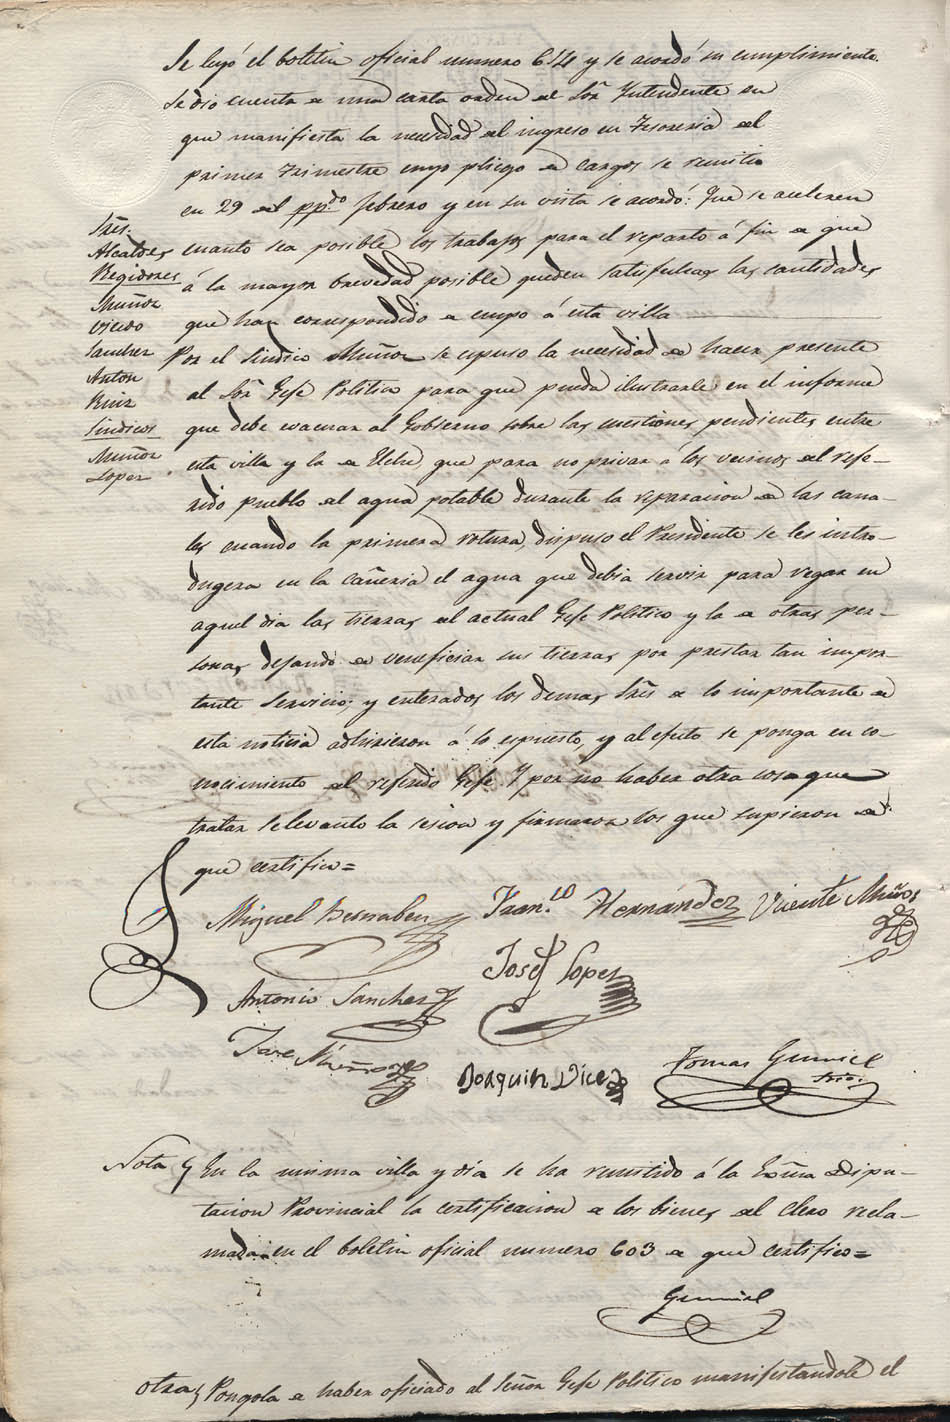 Se leyó el boletin oficial numero 614 y se acordó su cumplimiento.
Se dio cuenta de una carta orden del Sor. Yntendente en
que manifiesta la necesidad del ingreso en Tesoreria del
primer trimestre cuyo pliego de cargos se remitio
en 29 del pp.do febrero y en su vista se acordó: Que se aceleren
cuanto sea posible los trabajos para el reparto á fin de que
á la mayor brevedad posible queden satisfechas las cantidades
que han correspondido de cupo á esta villa
Sres.
Alcaldes
Regidores
Muñoz
Vicedo
Sanchez
Anton
Ruiz
Sindicos
Muñoz
Lopez
Por el Sindico Muñoz se espuso la necesidad de hacer presente
al Sor. Gefe Politico para que pueda ilustrarle en el informe
que debe evacuar al Gobierno sobre las cuestiones pendientes entre
esta villa y la de Elche, que para no privar á los vecinos del refe-
rido pueblo del agua potable durante la reparacion de las cana-
les cuando la primera rotura, dispuso el Presidente se les intro-
dugera en la cañeria el agua que debia servir para regar en
aquel dia las tierras del actual Gefe Politico y la de otras per-
sonas, dejando de veneficiar sus tierras por prestar tan impor-
tante servicio; y enterados los demas Sres de lo importante de
esta noticia adhirieron á lo espuesto, y al efecto se ponga en co-
nocimiento del referido Gefe. Y por no haber otra cosa que
tratar se levanto la sesion y firmaron los que supieron de
que certifico=
Miguel Bernabeu
Fran.co Hernández
Vicente Muñoz
José Lopez
Antonio Sanchez
Jose Muñoz
Joaquin Vicedo
Tomas Gumiel
Srio.
Nota
En la misma villa y dia se ha remitido á la Exma Dipu-
tacion Provincial la certificacion de los bienes del Clero recla-
mada en el boletin oficial numero 603 de que certifico=
Gumiel
Otra
Pongola de haber oficiado al Señor Gefe Politico manifestandole el